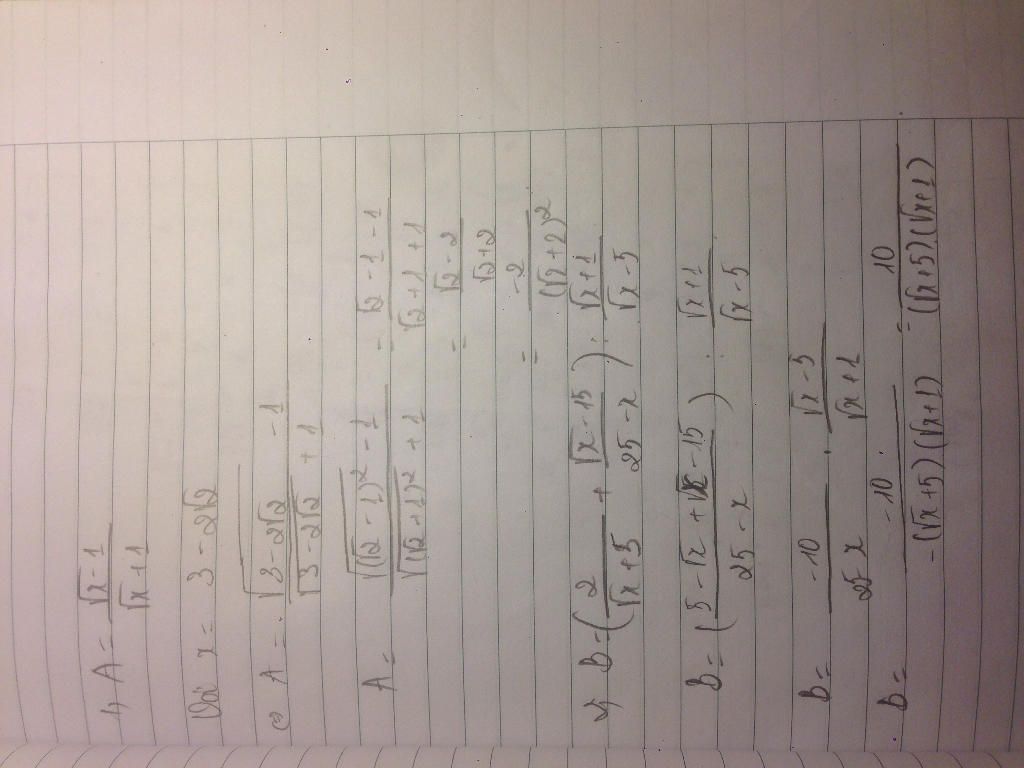 1, A = (√x - 1)/(√x + 1)
Với x = 3 - 2√2
⇔ A = (√(3 - 2√2) - 1)/(√(3 - 2√2) + 1)
A = (√((√2 - 1)²) - 1)/(√((√2 + 1)²) + 1) = (√2 - 1 - 1)/(√2 + 1 + 1)
= (√2 - 2)/(√2 + 2)
= -2/(√2 + 2)²
2, B = (2/(√x + 5) + (√x - 15)/(25 - x)) : (√x + 1)/(√x - 5)
B = ((5 - √x + √x - 15)/(25 - x)) : (√x + 1)/(√x - 5)
B = -10/(25 - x) . (√x - 5)/(√x + 1)
B = -10/(-(√x + 5)(√x + 1)) = 10/((√x + 5)(√x + 1))